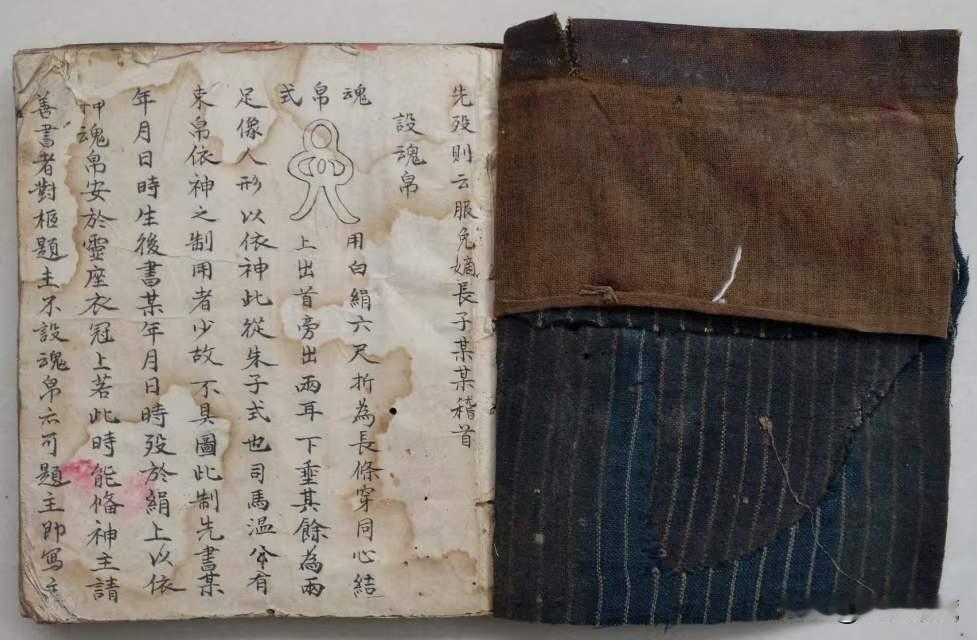 先殁則云服免嫡長子某某稽首
設魂帛
魂帛式
用白絹六尺折為長條穿同心結
上出首旁出兩耳下垂其餘為兩
足像人形以依神此從朱子式也司馬温公有
束帛依神之制用者少故不具圖此制先書某
年月日時生後書某年月日時殁於絹上以依
神魂帛安於靈座衣冠上若此時能偹神主請
善書者對柩題主不設魂帛亦可題主即寫